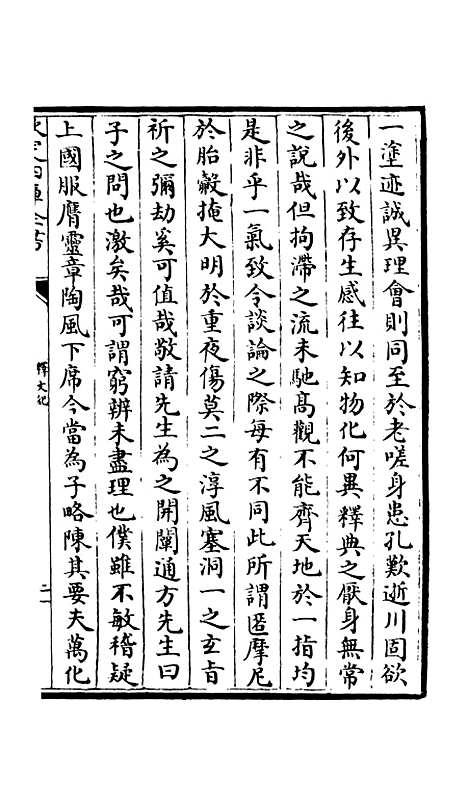 一塗迹誠異理會則同至於老嗟身患孔歎逝川固欲
後外以致存生感往以知物化何異釋典之厭身無常
之說哉但拘滯之流未馳髙觀不能齊天地於一指均
是非乎一氣致令談論之際每有不同此所謂匿摩尼
於胎㲉掩大明於重夜傷莫二之淳風塞洞一之𤣥㫖
祈之彌劫奚可值哉敬請先生為之開闡通方先生曰
子之問也激矣哉可謂窮辨未盡理也僕雖不敏稽疑
上國服膺靈章陶風下席今當為子略陳其要夫萬化
釋文紀
二